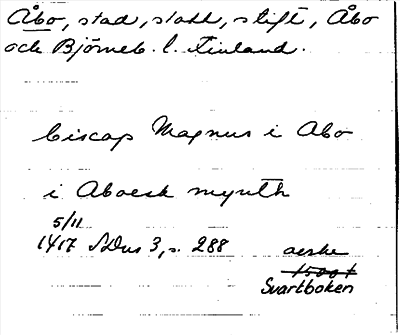 Åbo, stad, slott, stift, Åbo
och Björneb. l. Finland.
biscap Magnus i Abo
i Aboesk mynth
5/11
1417 SDns 3, s. 288
aeske
1500 t
Svartboken